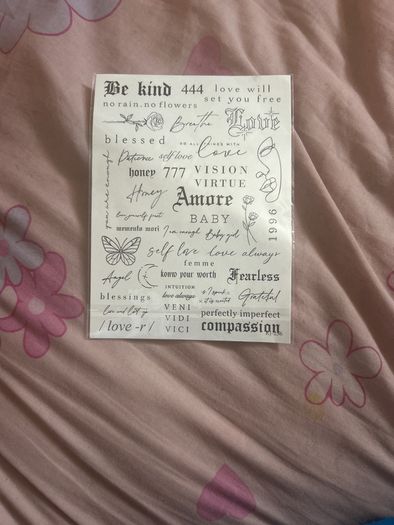 Be kind 444 love will
set you free
no rain.no flowers
Breathe Love
blessed
DO ALL THINGS WITH
Love
Patience self love
honey 777 VISION
VIRTUE
you are enough
Honey Amore
BABY
1996
love yourself first
memento mori I'm enough Baby girl
self love love always
femme
Angel konw your worth Fearless
INTUITION
blessings love always Grateful
live and let go VENI perfectly imperfect
/ love -r / VIDI compassion
VICI